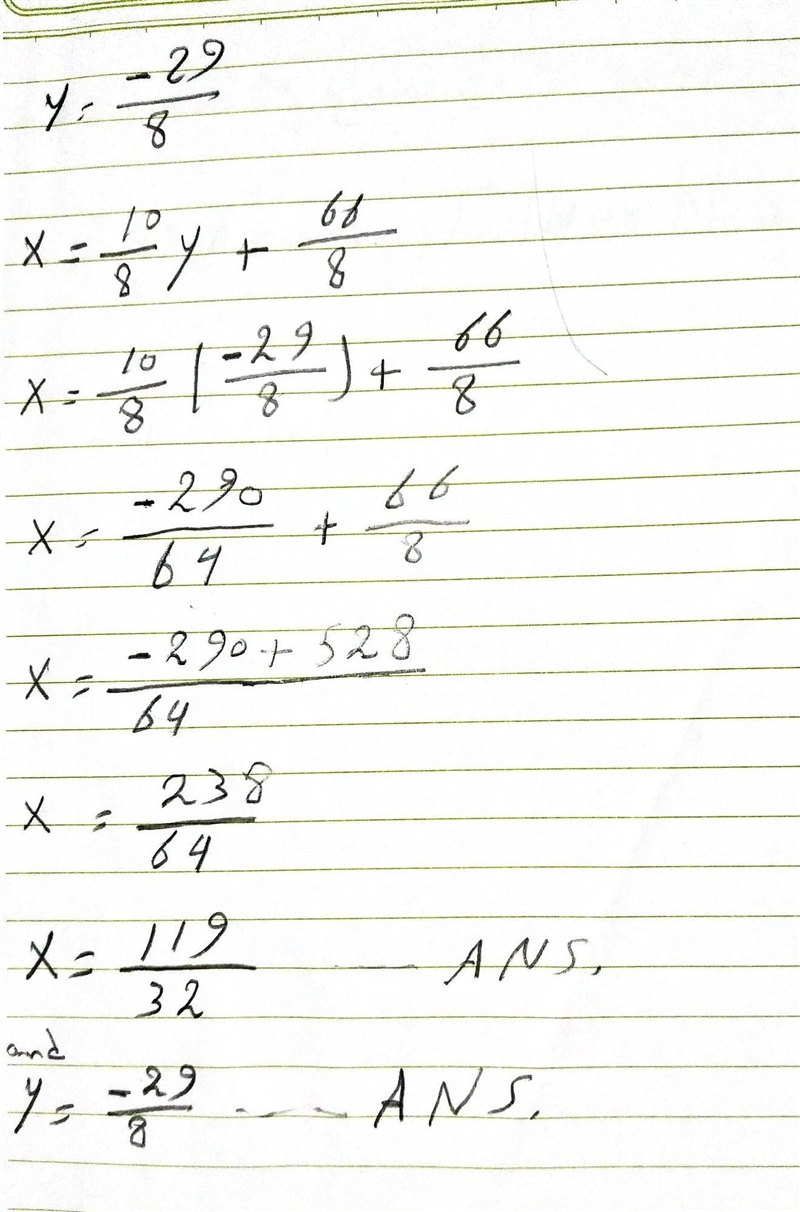 y = -29/8
x = 10/8 y + 66/8
x = 10/8 (-29/8) + 66/8
x = -290/64 + 66/8
x = -290 + 528/64
x = 238/64
x = 119/32 ---- ANS.
and
y = -29/8 ---- ANS.